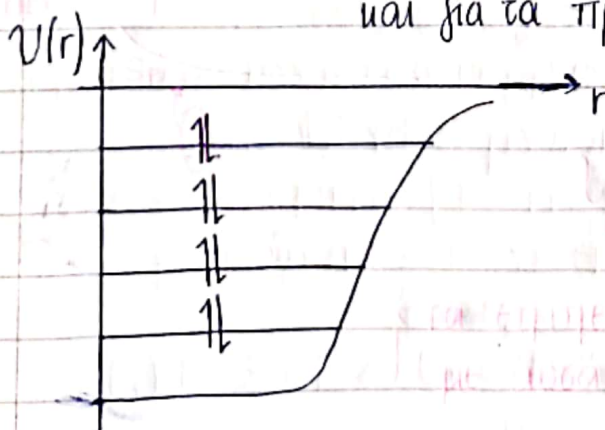 και για τα
V(r)
r